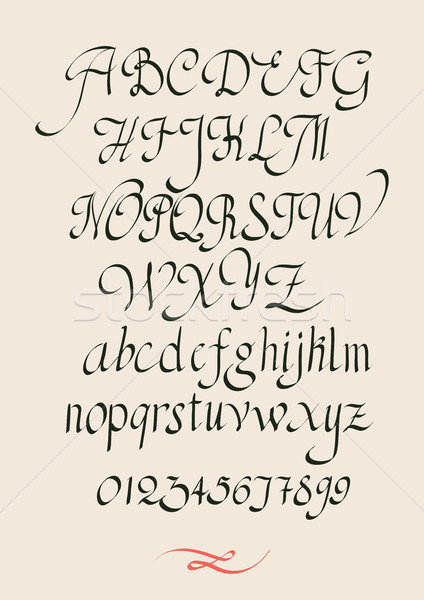 ABCDEFG
HIJKLM
NOPQRSTUV
WXYZ
abcdefghijklm
nopqrstuvwxyz
01234567899
stockfresh